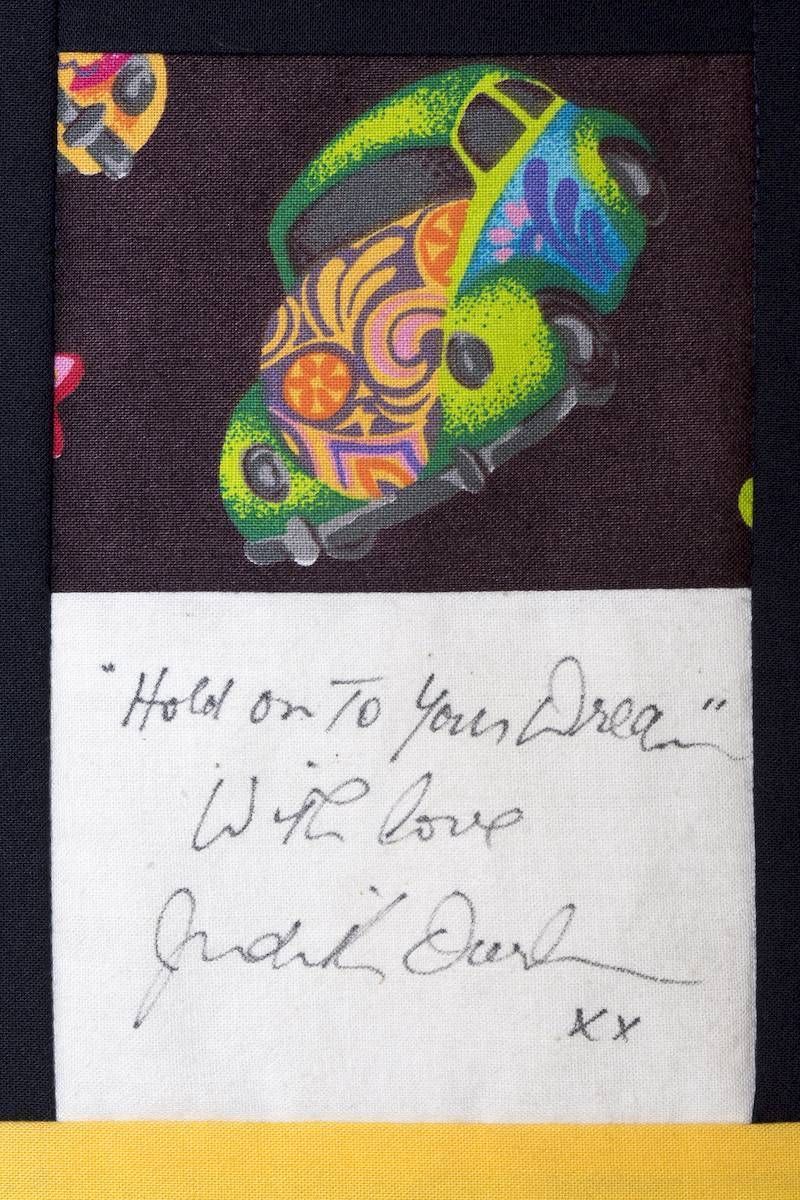 "Hold on To Your Dream"
With love
Judith Durham
xx